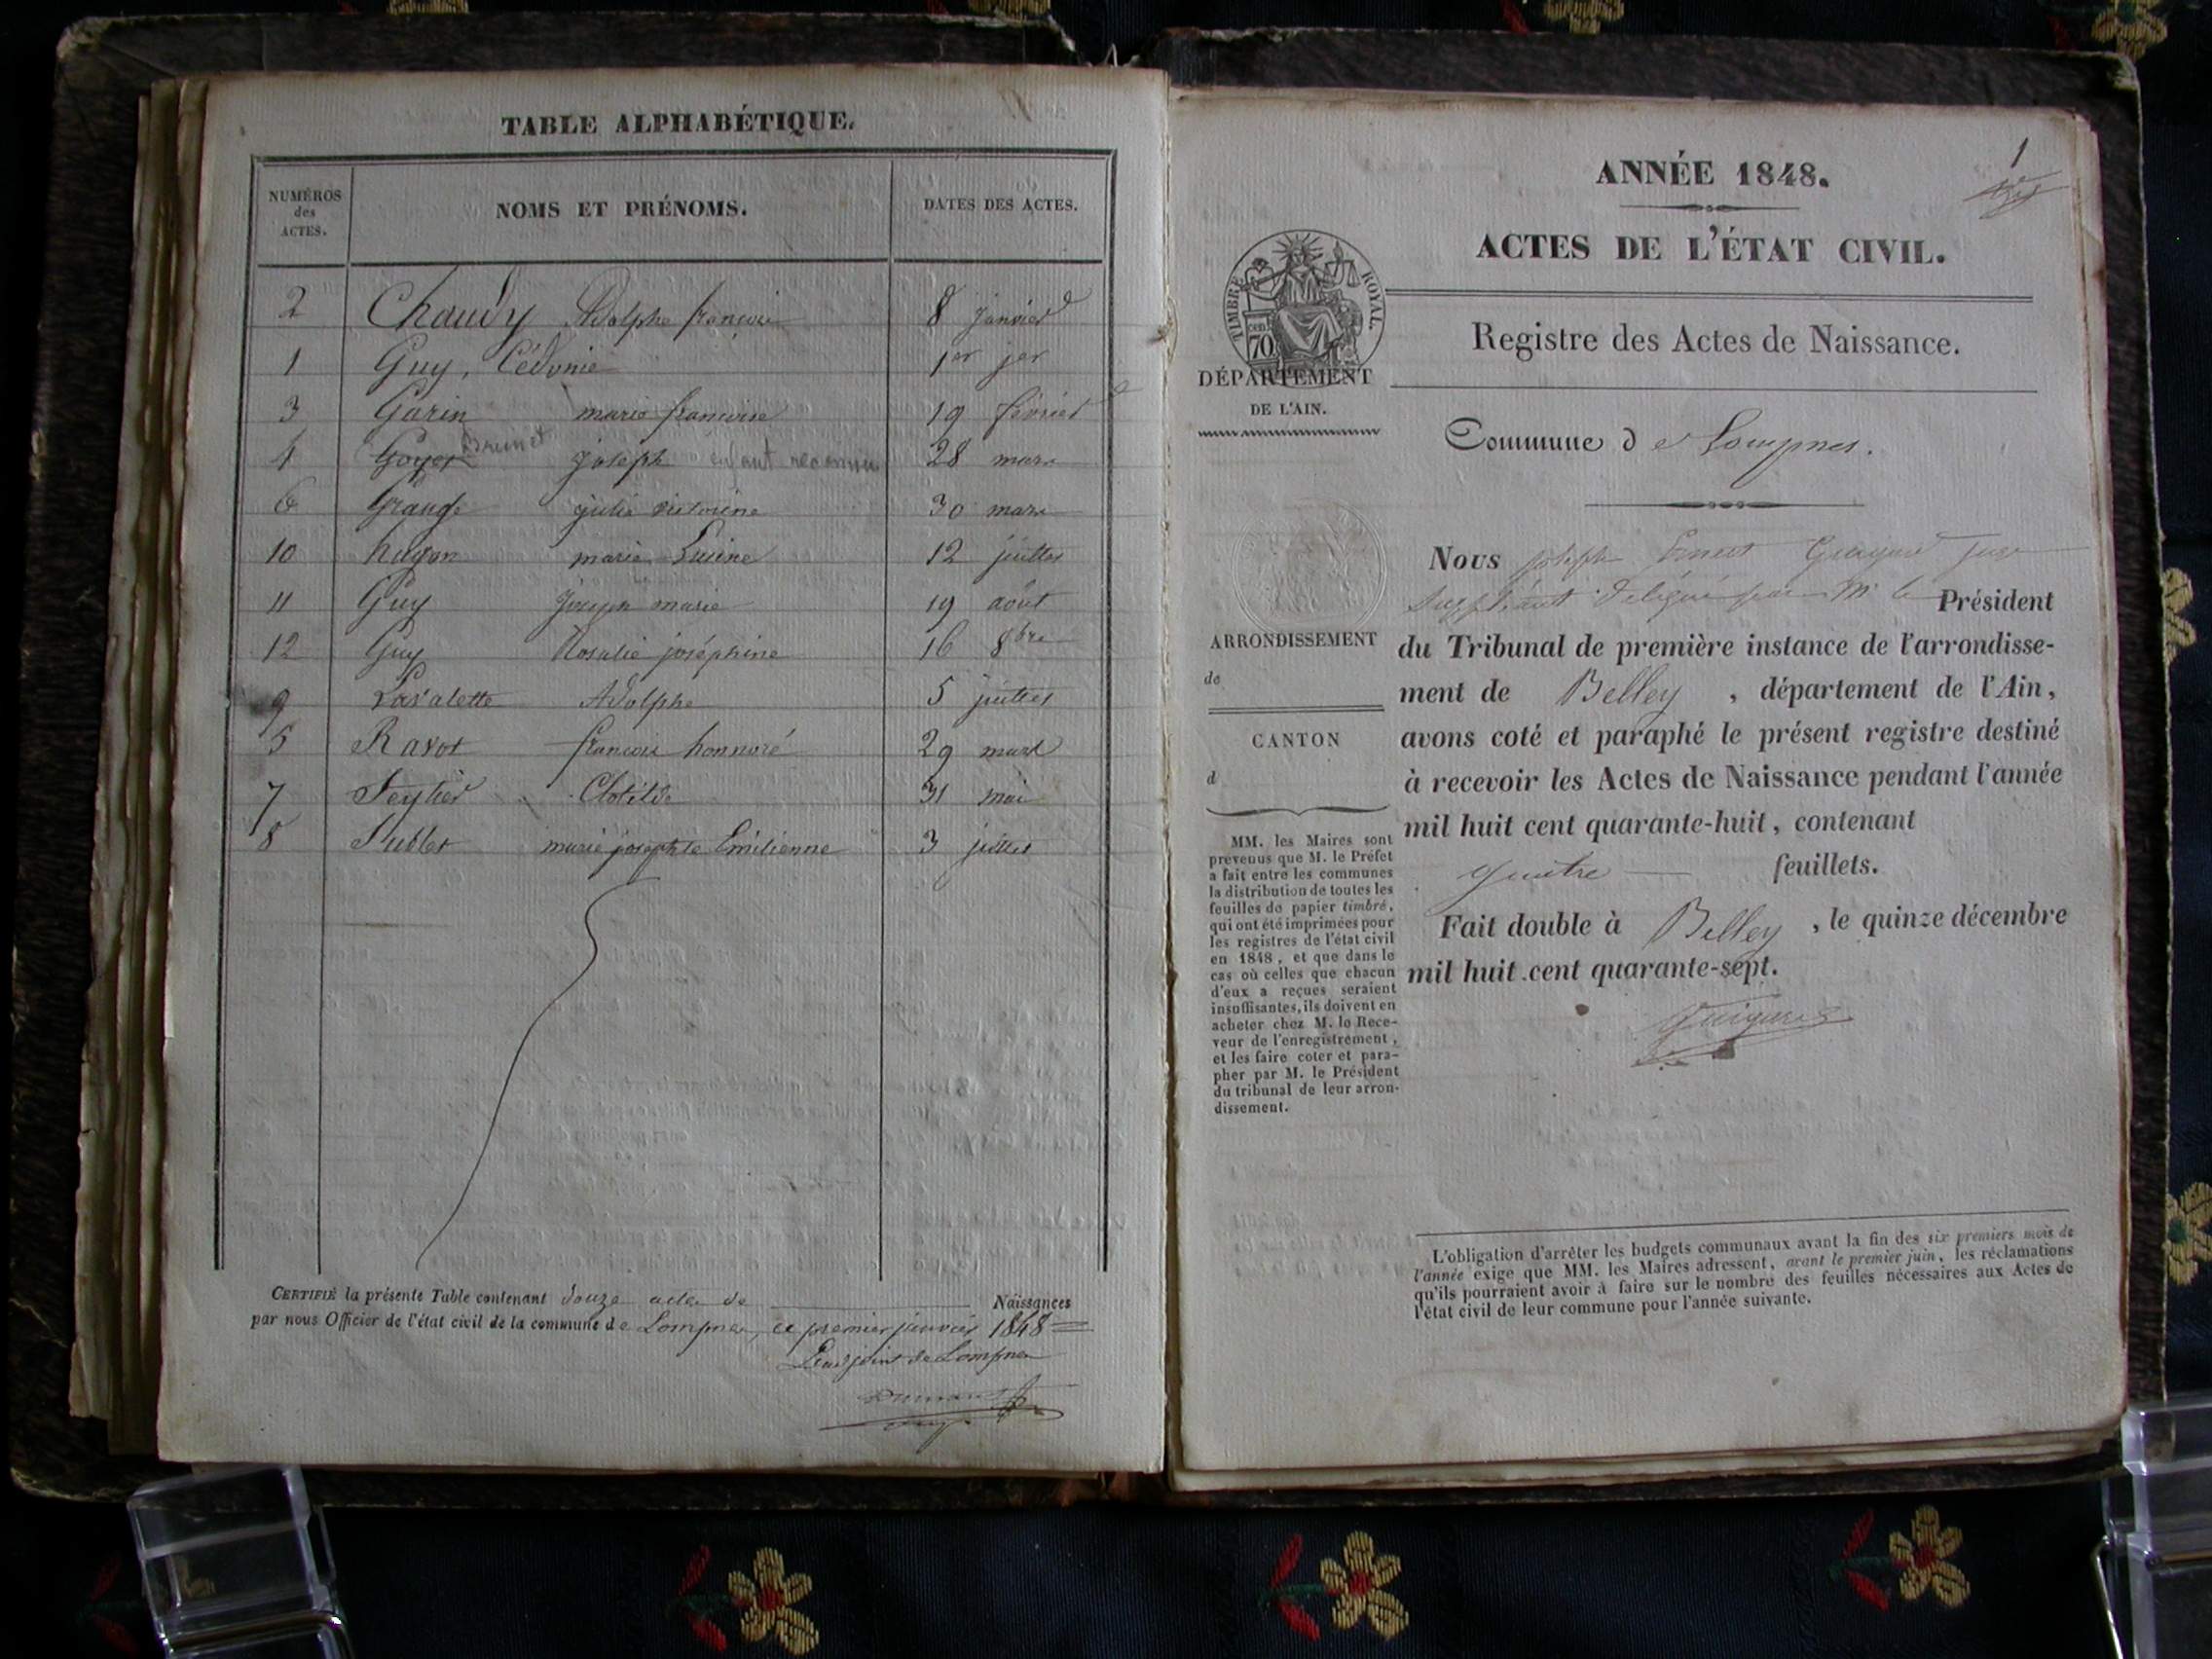 TABLE ALPHABÉTIQUE.
NUMÉROS des ACTES. NOMS ET PRÉNOMS. DATES DES ACTES.
2 Chaudy Adolphe françois 8 janvier
1 Guy, Cédonie 1er jer
3 Garin marie françoise 19 février
4 Goyet Brunet joseph enfant reconnu 28 mars
6 Grange julie victorine 30 mars
10 hugon marie Lucine 12 juillet
11 Guy Joseph marie 19 août
12 Guy Rosalie joséphine 16 8bre
9 Lavalette Adolphe 5 juillet
5 Ravot françois honnoré 29 mars
7 Seytier Clotilde 31 mai
8 Sublet marie josephte Emilienne 3 juillet
CERTIFIÉ la présente Table contenant douze actes de Naissances
par nous Officier de l'état civil de la commune de Lompnes, ce premier janvier 1848
L'adjoint de Lompnes
1
ANNÉE 1848.
ACTES DE L'ÉTAT CIVIL.
TIMBRE ROYAL.
70 cen
Registre des Actes de Naissance.
DÉPARTEMENT
DE L'AIN.
Commune de Lompnes.
Nous joseph Ernest Guigard juge
suppléant délégué par M. le Président
du Tribunal de première instance de l'arrondisse-
ment de Belley, département de l'Ain,
avons coté et paraphé le présent registre destiné
à recevoir les Actes de Naissance pendant l'année
mil huit cent quarante-huit, contenant
quatre feuillets.
Fait double à Belley, le quinze décembre
mil huit cent quarante-sept.
Guigard
ARRONDISSEMENT
de
CANTON
d
MM. les Maires sont
prévenus que M. le Préfet
a fait entre les communes
la distribution de toutes les
feuilles de papier timbré,
qui ont été imprimées pour
les registres de l'état civil
en 1848, et que dans le
cas où celles que chacun
d'eux a reçues seraient
insuffisantes, ils doivent en
acheter chez M. le Rece-
veur de l'enregistrement,
et les faire coter et para-
pher par M. le Président
du tribunal de leur arron-
dissement.
L'obligation d'arrêter les budgets communaux avant la fin des six premiers mois de
l'année exige que MM. les Maires adressent, avant le premier juin, les réclamations
qu'ils pourraient avoir à faire sur le nombre des feuilles nécessaires aux Actes de
l'état civil de leur commune pour l'année suivante.